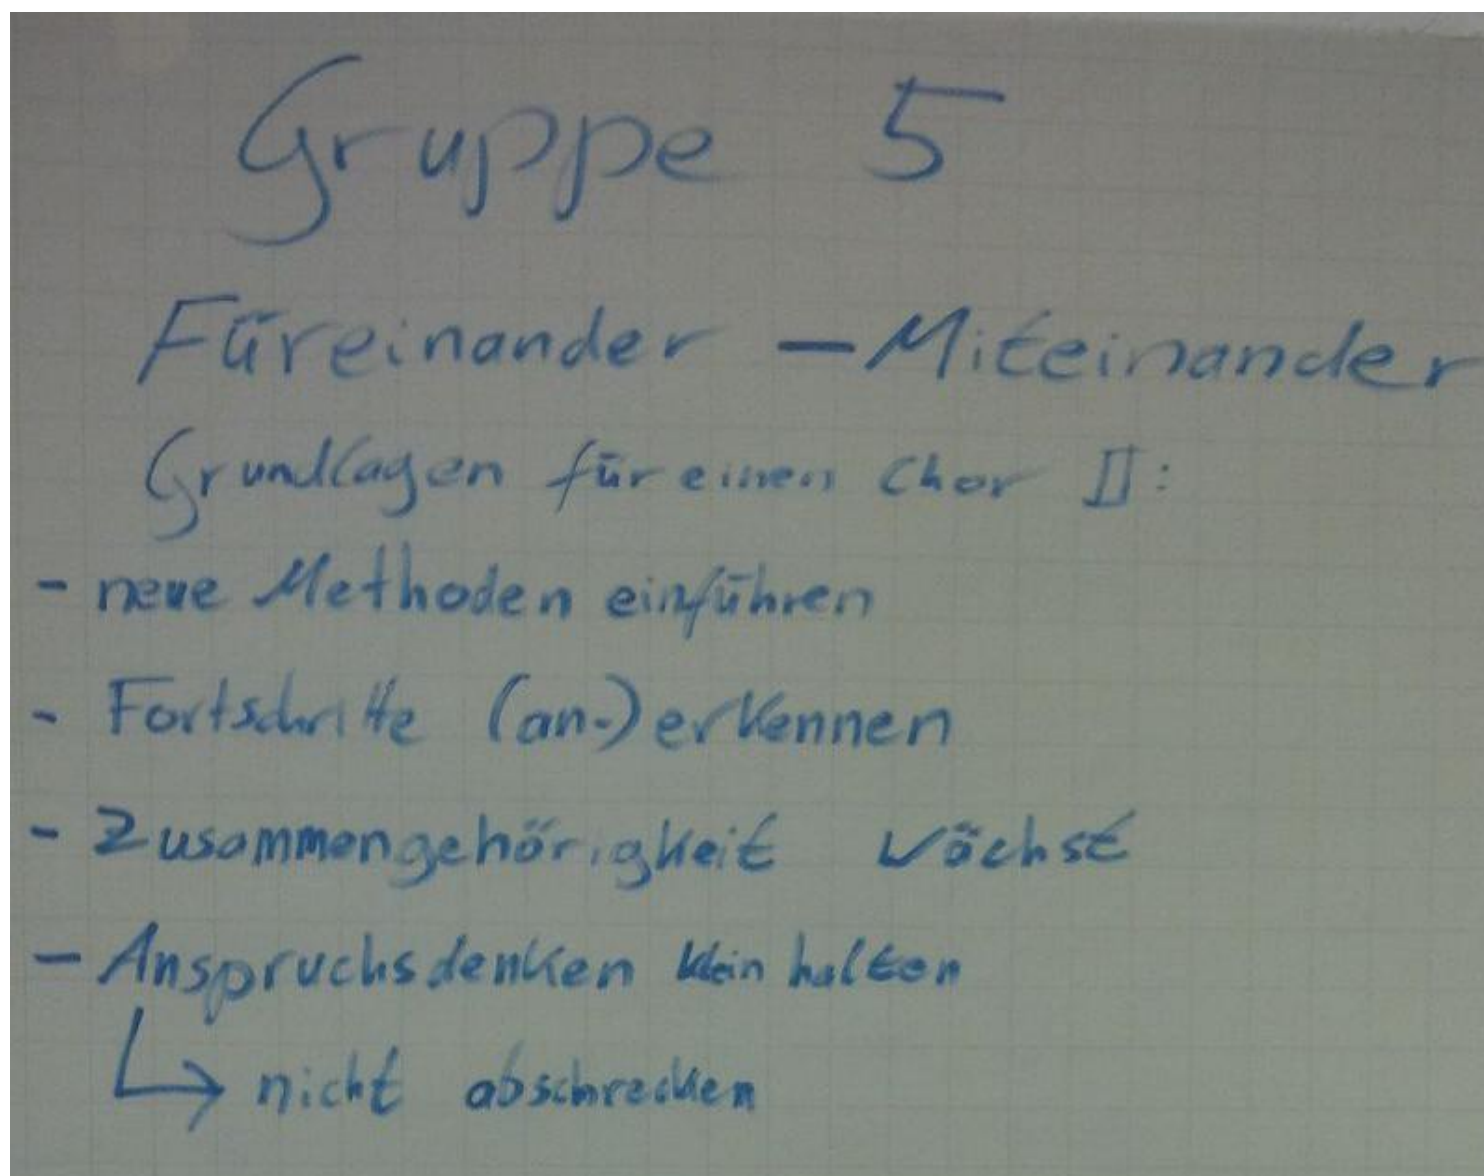 Gruppe 5
Füreinander – Miteinander
Grundlagen für einen Chor II:
- neue Methoden einführen
- Fortschritte (an-)erkennen
- Zusammengehörigkeit wächst
- Anspruchsdenken klein halten
↳ nicht abschrecken